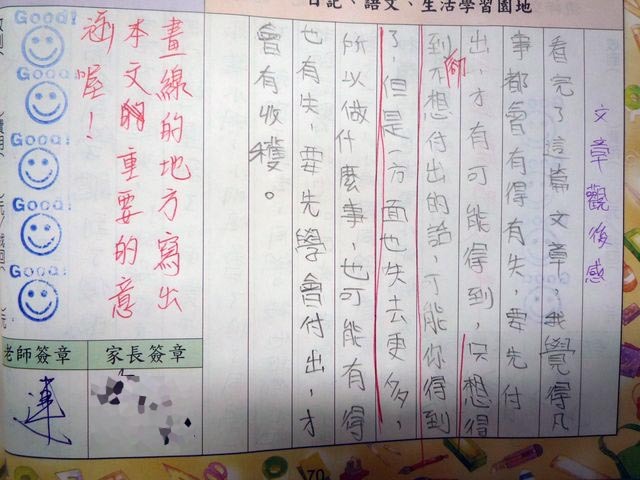 日記、語文、生活學習園地
文章觀後感
看完了這篇文章,我覺得凡
事都會有得有失,要先付
出,才有可能得到,只想得
到卻不想付出的話,可能你得到
了,但是一方面也失去更多,
所以做什麼事,也可能有得
也有失,要先學會付出,才
會有收穫。
畫線的地方寫出
本文的重要的意
涵喔!
Good!
Good!
Good!
Good!
Good!
家長簽章
老師簽章
達
70